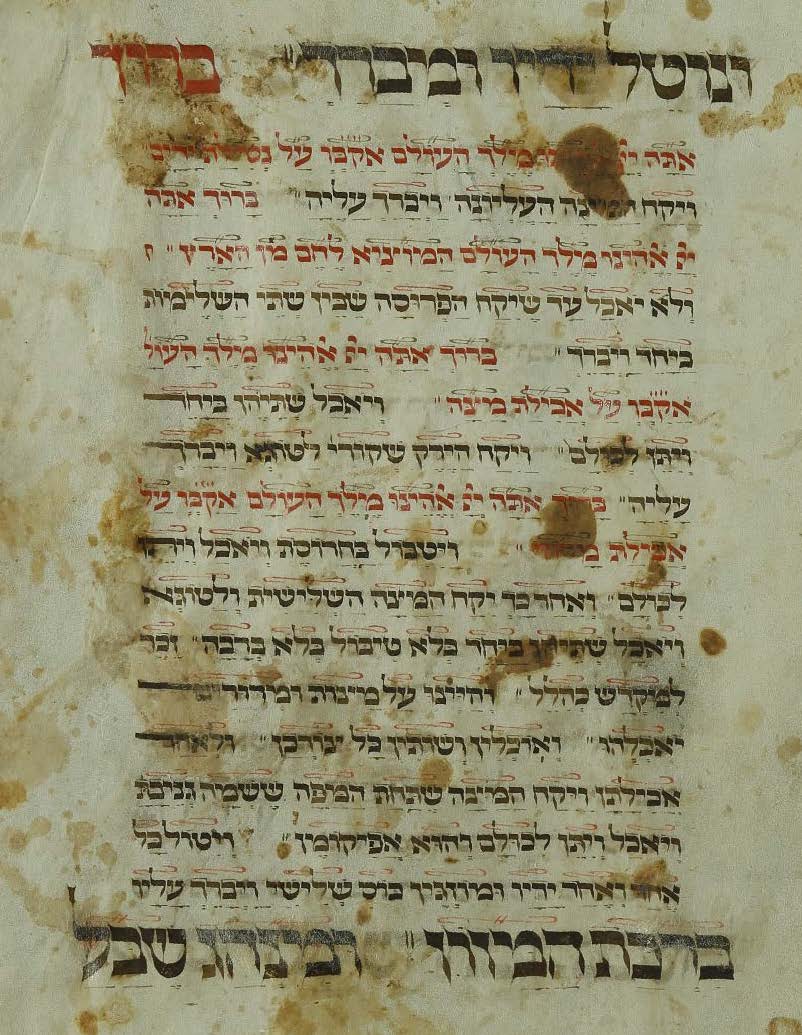 ונוטל ידיו ומברך ברוך
אתה יי מלך העולם אקבו על
ויקח המצה העליונה ויברך עליה ברוך אתה
יי אהינו מלך העולם המוציא לחם מן הארץ
ולא יאכל עד שיקח הפרוסה שבין שתי השלימות
ביחד ויברך ברוך אתה יי אהינו מלך העול
אקבו על אכילת מצה ויאכל שתיהן ביחד
ויתן לכולם ויקח הירק שקורי לטוגא ויברך
עליה ברוך אתה יי אהינו מלך העולם אקבו על
אכילת ויטבול בחרוסת ויאכל ויתן
לכולם ואחר כך יקח המצה השלישית ולטוגא
ויאכל שתיהן ביחד בלא טיבול בלא ברכה זכר
למקדש כהלל והיינו על מצות ומרורים
יאכלהו ואוכלין ושותין כל צורכן ולאחר
אכילתן ויקח המצה שתחת המפה ששמה גניבת
ויאכל ויתן לכולם והוא אפיקומין ויטול כל
אחד ואחד ידיו ומוזגין כוס שלישי ויברך עליו
ברכת המזון ומנהג שכל